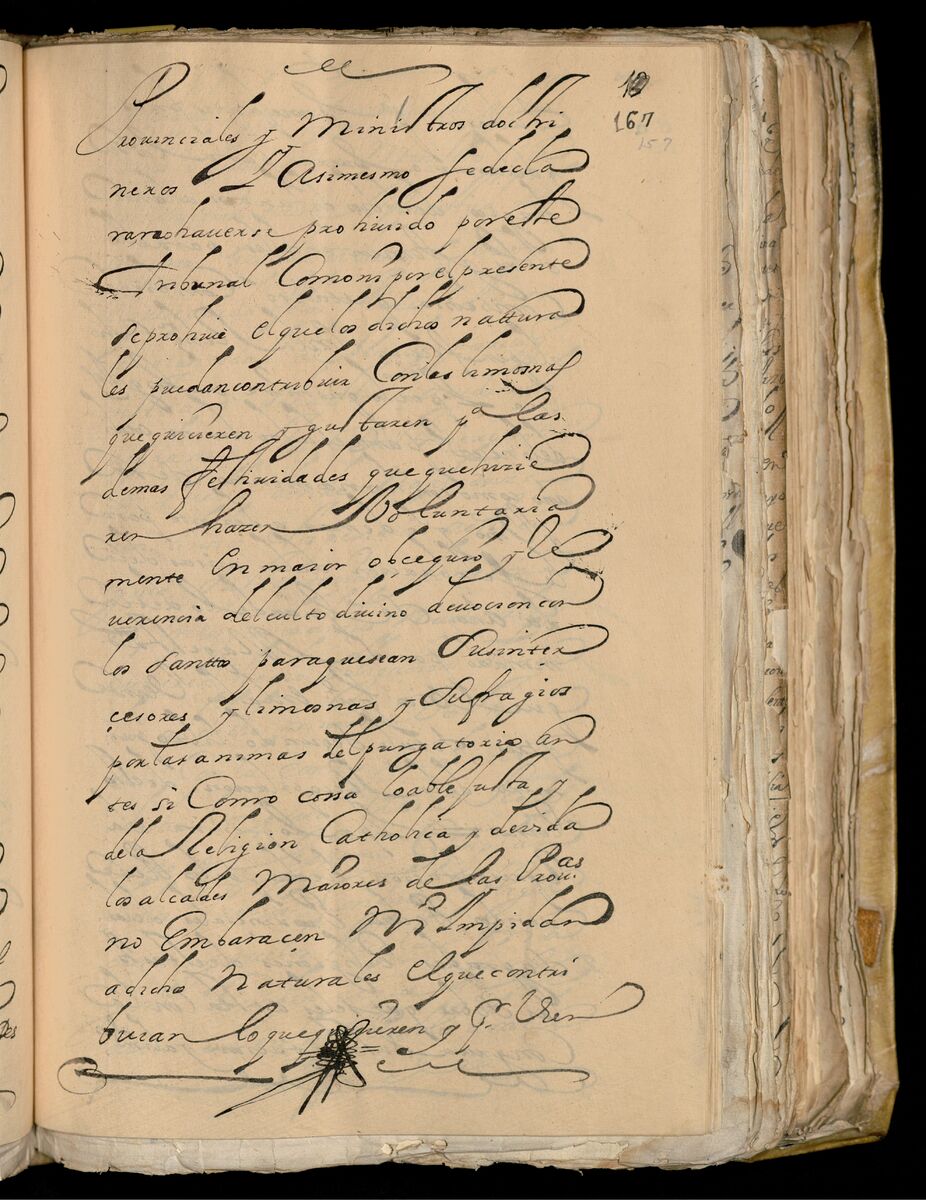 19
167
157
Provinciales y Ministros doctri
neros Y Asimesmo se decla
ra no haverse prohivido por este
Tribunal Como ni por el presente
se prohive el que los dichos nattura
les puedan contribuir Con las limosnas
que quicieren y gustaren pª las
demas festividades que quehirie
ren hazer Voluntaria
mente En maior obcequio y Re
verencia del culto divino devocion con
los santtos para que sean Sus inter
cesores y limosnas y Sufragios
por las animas del purgatorio an
tes si Como cossa loable Justa y
de la Religion Catholica y devida
los alcaldes Maiores de las Prouas
no Embaracen Ni Impidan
a dichos Naturales el que contri
buian lo que quisieren y